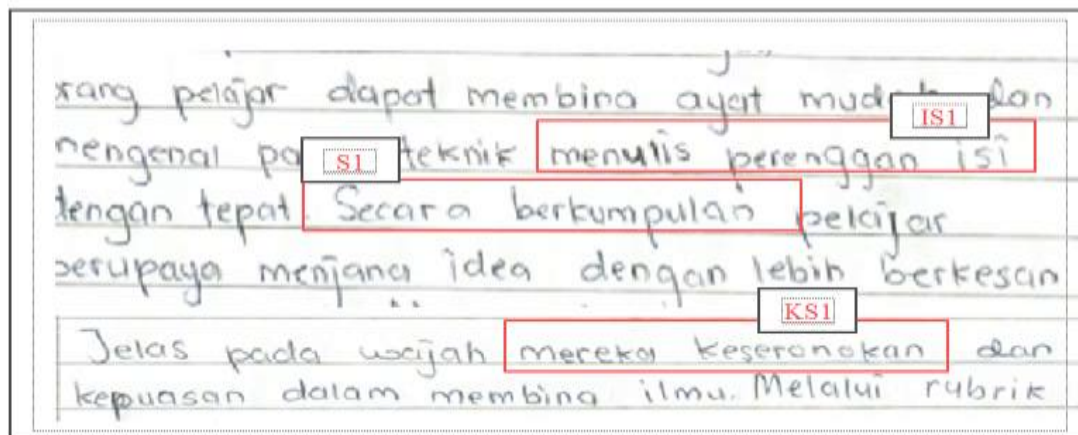 IS1
S1
KS1
rang pelajar dapat membina ayat mudah dan
mengenal teknik menulis perenggan isi
dengan tepat. Secara berkumpulan pelajar
berupaya menjana idea dengan lebih berkesan
Jelas pada wajah mereka keseronokan dan
kepuasan dalam membina ilmu. Melalui rubrik